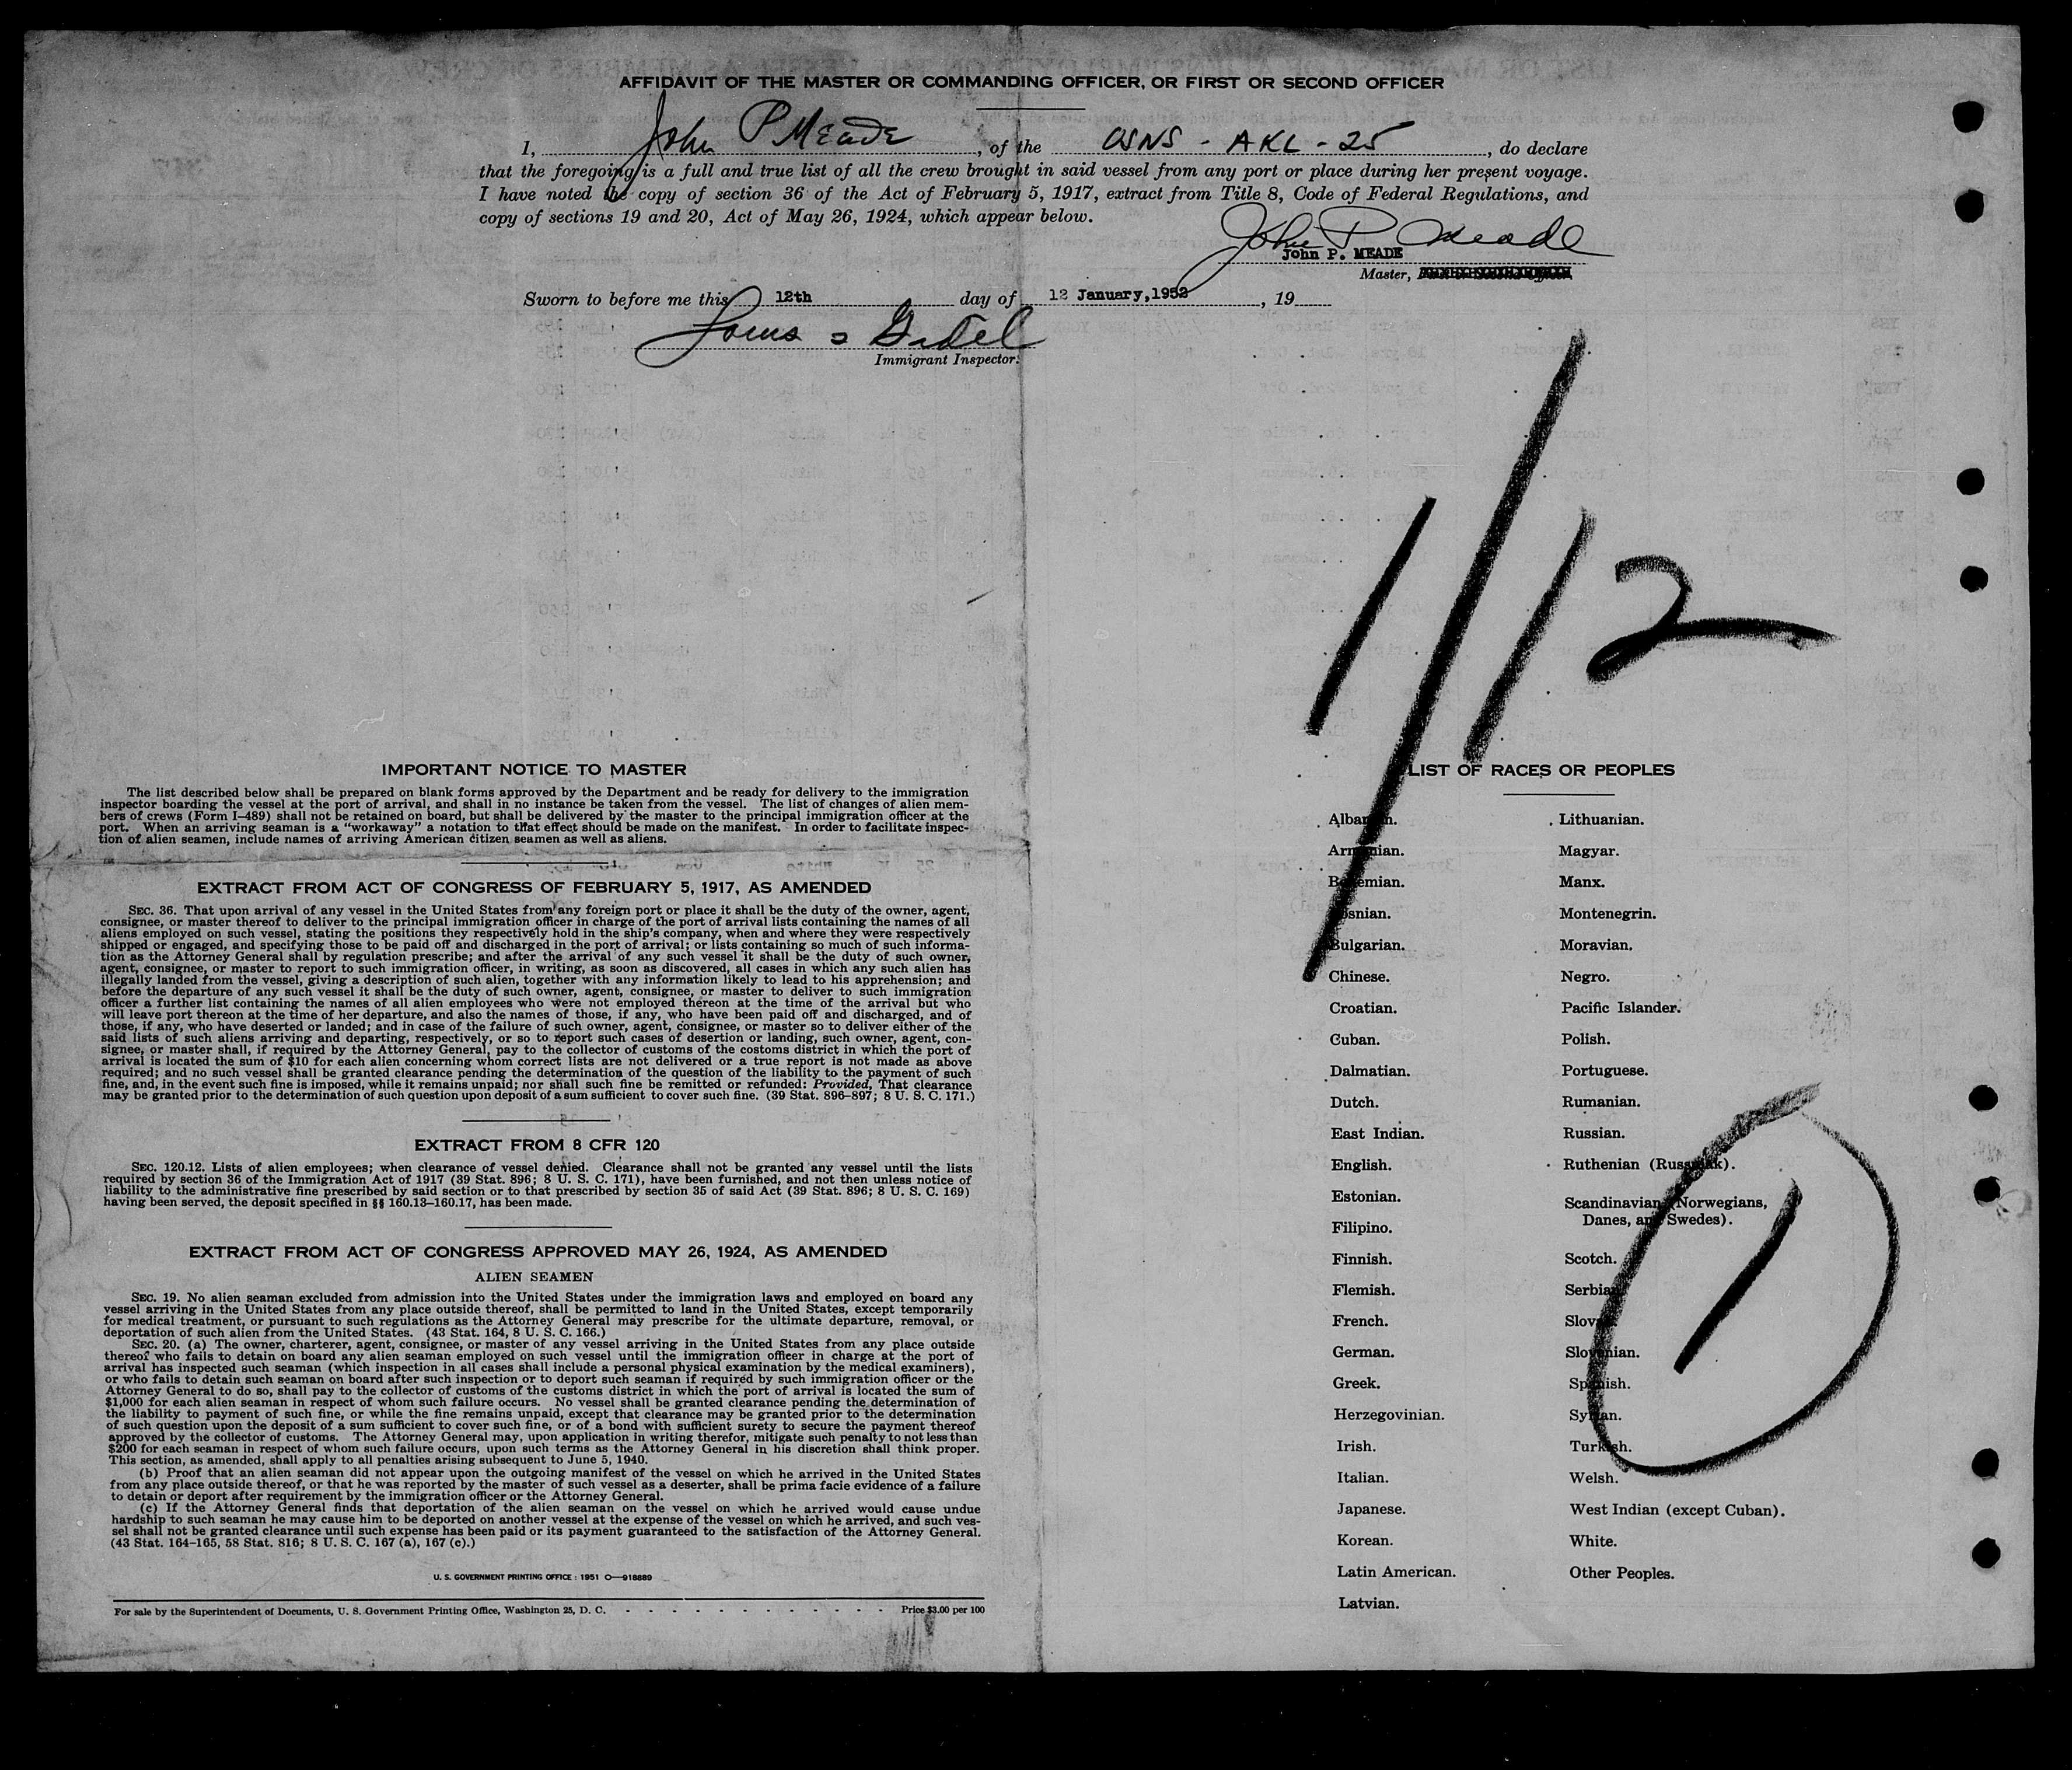 AFFIDAVIT OF THE MASTER OR COMMANDING OFFICER, OR FIRST OR SECOND OFFICER
I, John P Meade, of the USNS - AKL - 25, do declare
that the foregoing is a full and true list of all the crew brought in said vessel from any port or place during her present voyage.
I have noted the copy of section 36 of the Act of February 5, 1917, extract from Title 8, Code of Federal Regulations, and
copy of sections 19 and 20, Act of May 26, 1924, which appear below.
John P. Meade
John P. MEADE
Master,
Sworn to before me this 12th day of 12 January,1952, 19
Immigrant Inspector.
1/12
IMPORTANT NOTICE TO MASTER
The list described below shall be prepared on blank forms approved by the Department and be ready for delivery to the immigration
inspector boarding the vessel at the port of arrival, and shall in no instance be taken from the vessel. The list of changes of alien mem-
bers of crews (Form I–489) shall not be retained on board, but shall be delivered by the master to the principal immigration officer at the
port. When an arriving seaman is a “workaway” a notation to that effect should be made on the manifest. In order to facilitate inspec-
tion of alien seamen, include names of arriving American citizen seamen as well as aliens.
EXTRACT FROM ACT OF CONGRESS OF FEBRUARY 5, 1917, AS AMENDED
SEC. 36. That upon arrival of any vessel in the United States from any foreign port or place it shall be the duty of the owner, agent,
consignee, or master thereof to deliver to the principal immigration officer in charge of the port of arrival lists containing the names of all
aliens employed on such vessel, stating the positions they respectively hold in the ship's company, when and where they were respectively
shipped or engaged, and specifying those to be paid off and discharged in the port of arrival; or lists containing so much of such informa-
tion as the Attorney General shall by regulation prescribe; and after the arrival of any such vessel it shall be the duty of such owner,
agent, consignee, or master to report to such immigration officer, in writing, as soon as discovered, all cases in which any such alien has
illegally landed from the vessel, giving a description of such alien, together with any information likely to lead to his apprehension; and
before the departure of any such vessel it shall be the duty of such owner, agent, consignee, or master to deliver to such immigration
officer a further list containing the names of all alien employees who were not employed thereon at the time of the arrival but who
will leave port thereon at the time of her departure, and also the names of those, if any, who have been paid off and discharged, and of
those, if any, who have deserted or landed; and in case of the failure of such owner, agent, consignee, or master so to deliver either of the
said lists of such aliens arriving and departing, respectively, or so to report such cases of desertion or landing, such owner, agent, con-
signee, or master shall, if required by the Attorney General, pay to the collector of customs of the costoms district in which the port of
arrival is located the sum of $10 for each alien concerning whom correct lists are not delivered or a true report is not made as above
required; and no such vessel shall be granted clearance pending the determination of the question of the liability to the payment of such
fine, and, in the event such fine is imposed, while it remains unpaid; nor shall such fine be remitted or refunded: Provided, That clearance
may be granted prior to the determination of such question upon deposit of a sum sufficient to cover such fine. (39 Stat. 896–897; 8 U. S. C. 171.)
EXTRACT FROM 8 CFR 120
SEC. 120.12. Lists of alien employees; when clearance of vessel denied. Clearance shall not be granted any vessel until the lists
required by section 36 of the Immigration Act of 1917 (39 Stat. 896; 8 U. S. C. 171), have been furnished, and not then unless notice of
liability to the administrative fine prescribed by said section or to that prescribed by section 35 of said Act (39 Stat. 896; 8 U. S. C. 169)
having been served, the deposit specified in §§ 160.13–160.17, has been made.
EXTRACT FROM ACT OF CONGRESS APPROVED MAY 26, 1924, AS AMENDED
ALIEN SEAMEN
SEC. 19. No alien seaman excluded from admission into the United States under the immigration laws and employed on board any
vessel arriving in the United States from any place outside thereof, shall be permitted to land in the United States, except temporarily
for medical treatment, or pursuant to such regulations as the Attorney General may prescribe for the ultimate departure, removal, or
deportation of such alien from the United States. (43 Stat. 164, 8 U. S. C. 166.)
SEC. 20. (a) The owner, charterer, agent, consignee, or master of any vessel arriving in the United States from any place outside
thereof who fails to detain on board any alien seaman employed on such vessel until the immigration officer in charge at the port of
arrival has inspected such seaman (which inspection in all cases shall include a personal physical examination by the medical examiners),
or who fails to detain such seaman on board after such inspection or to deport such seaman if required by such immigration officer or the
Attorney General to do so, shall pay to the collector of customs of the customs district in which the port of arrival is located the sum of
$1,000 for each alien seaman in respect of whom such failure occurs. No vessel shall be granted clearance pending the determination of
the liability to payment of such fine, or while the fine remains unpaid, except that clearance may be granted prior to the determination
of such question upon the deposit of a sum sufficient to cover such fine, or of a bond with sufficient surety to secure the payment thereof
approved by the collector of customs. The Attorney General may, upon application in writing therefor, mitigate such penalty to not less than
$200 for each seaman in respect of whom such failure occurs, upon such terms as the Attorney General in his discretion shall think proper.
This section, as amended, shall apply to all penalties arising subsequent to June 5, 1940.
(b) Proof that an alien seaman did not appear upon the outgoing manifest of the vessel on which he arrived in the United States
from any place outside thereof, or that he was reported by the master of such vessel as a deserter, shall be prima facie evidence of a failure
to detain or deport after requirement by the immigration officer or the Attorney General.
(c) If the Attorney General finds that deportation of the alien seaman on the vessel on which he arrived would cause undue
hardship to such seaman he may cause him to be deported on another vessel at the expense of the vessel on which he arrived, and such ves-
sel shall not be granted clearance until such expense has been paid or its payment guaranteed to the satisfaction of the Attorney General.
(43 Stat. 164–165, 58 Stat. 816; 8 U. S. C. 167 (a), 167 (c).)
U. S. GOVERNMENT PRINTING OFFICE : 1951 O—918889
For sale by the Superintendent of Documents, U. S. Government Printing Office, Washington 25, D. C. - - - - - - - - - - - Price $3.00 per 100
LIST OF RACES OR PEOPLES
Albanian.
Armenian.
Bohemian.
Bosnian.
Bulgarian.
Chinese.
Croatian.
Cuban.
Dalmatian.
Dutch.
East Indian.
English.
Estonian.
Filipino.
Finnish.
Flemish.
French.
German.
Greek.
Herzegovinian.
Irish.
Italian.
Japanese.
Korean.
Latin American.
Latvian.
Lithuanian.
Magyar.
Manx.
Montenegrin.
Moravian.
Negro.
Pacific Islander.
Polish.
Portuguese.
Rumanian.
Russian.
Ruthenian (Russniak).
Scandinavian (Norwegians,
Danes, and Swedes).
Scotch.
Serbian.
Slovak.
Slovenian.
Spanish.
Syrian.
Turkish.
Welsh.
West Indian (except Cuban).
White.
Other Peoples.
1